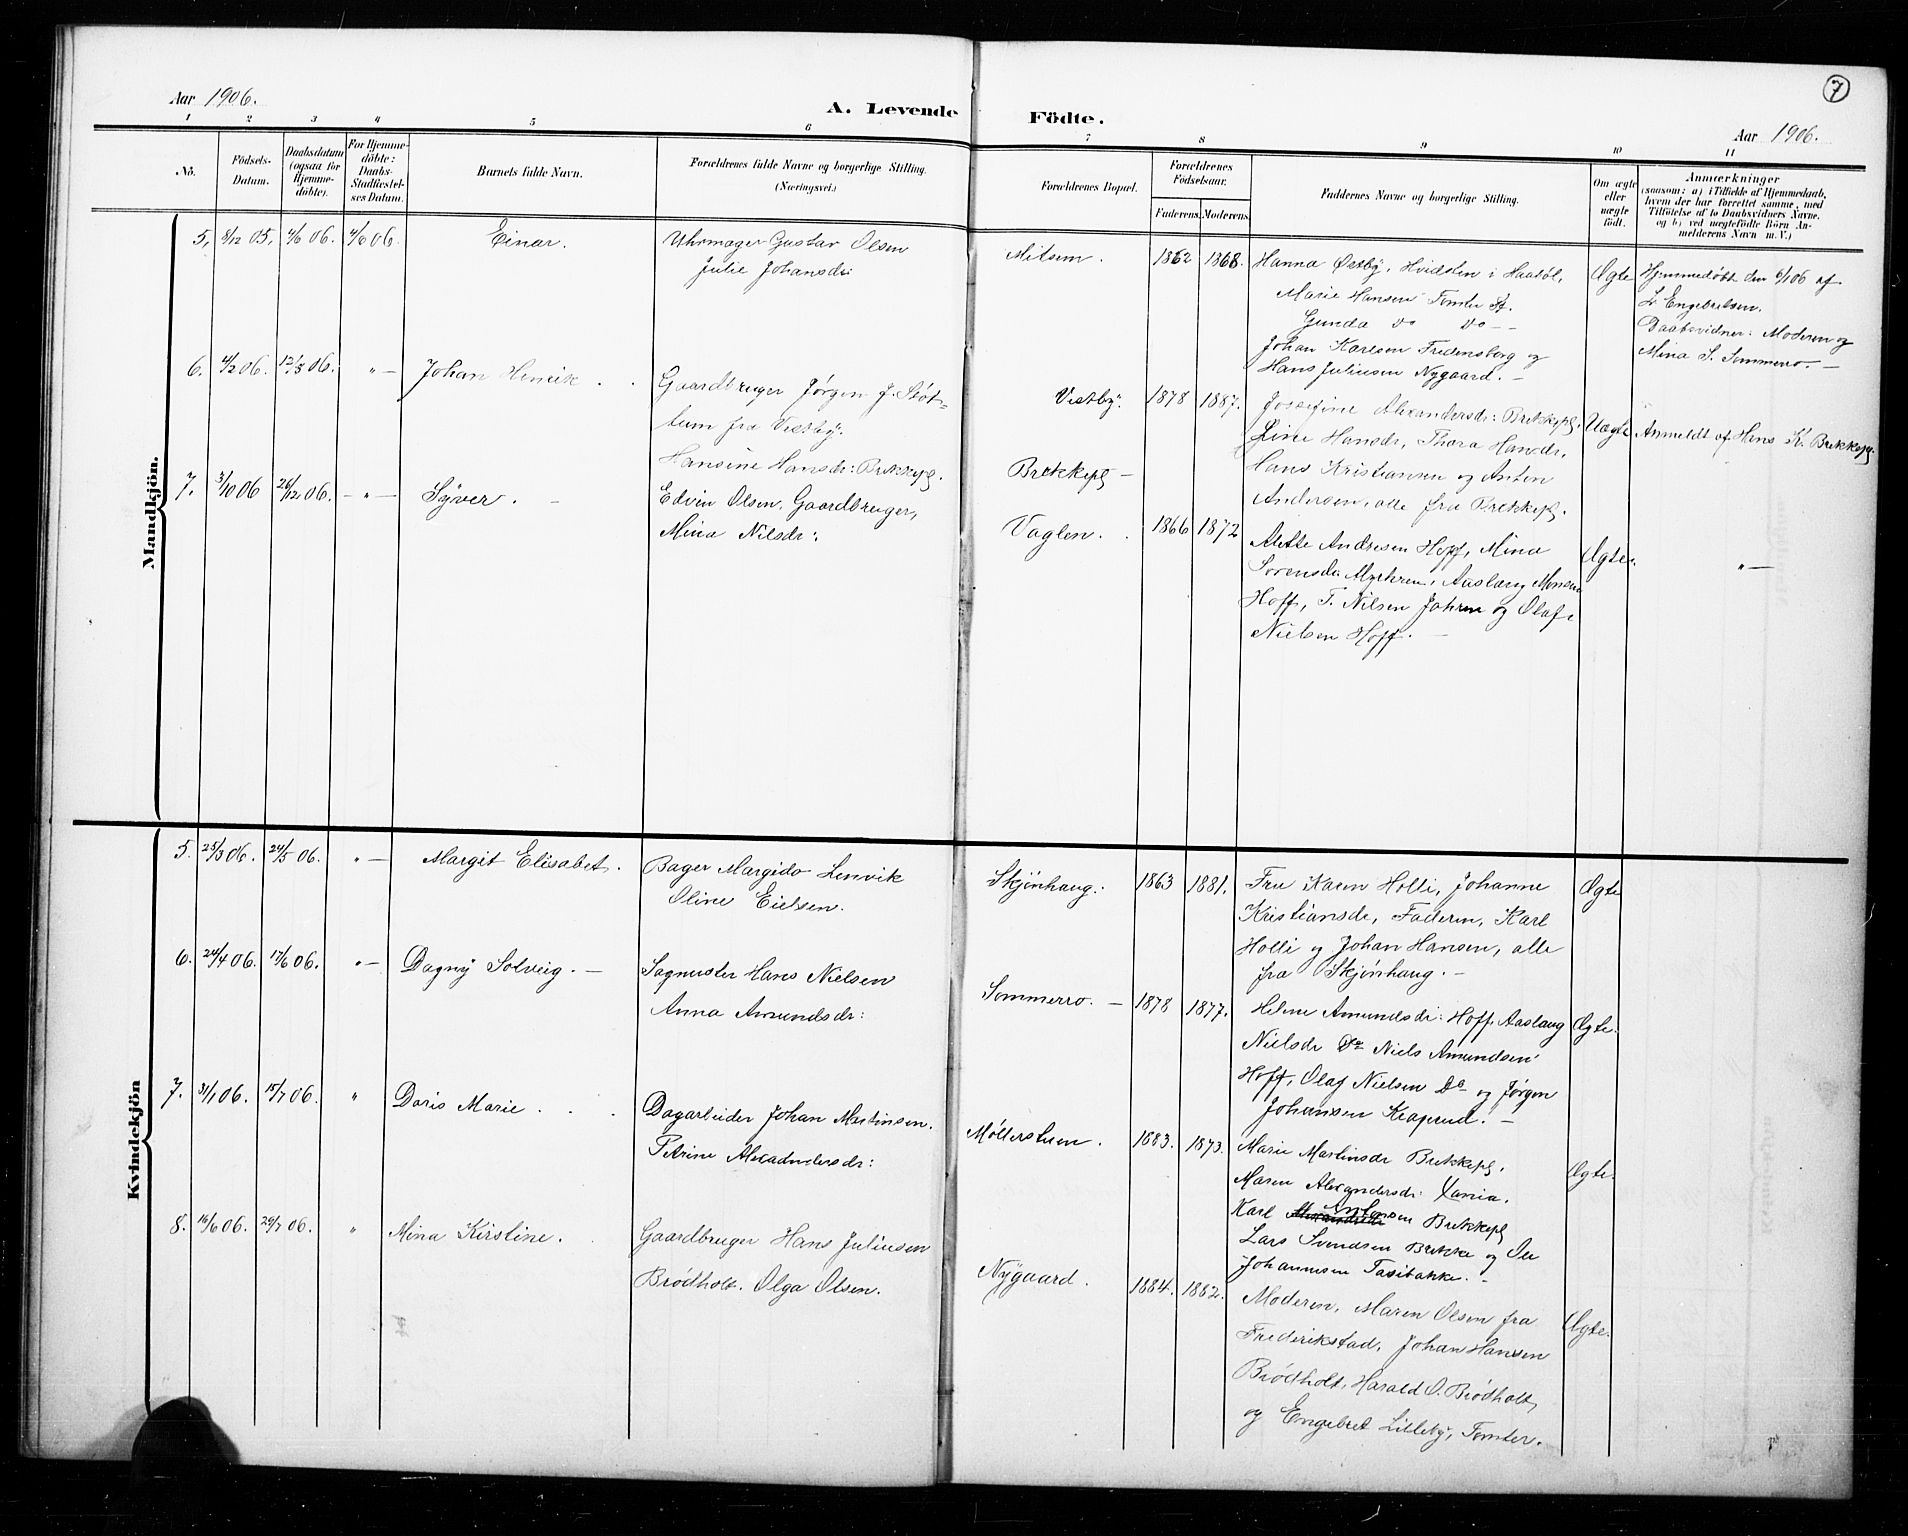 7
Aar 1906.
A. Levende Födte.
Aar 1906.
1 2 3 4 5 6 7 8 9 10 11
No.
Födsels-
Datum.
Daabsdatum
(ogsaa for
Hjemme-
døbte).
For Hjemme-
döbte:
Daabs-
Stadfæstel-
ses Datum.
Barnets fulde Navn.
Forældrenes fulde Navne og borgerlige Stilling.
(Næringsvei.)
Forældrenes Bopæl.
Forældrenes
Födselsaar.
Faderens. Moderens.
Faddernes Navne og borgerlige Stilling.
Om ægte
eller
uægte
födt.
Anmærkninger
(saasom: a) i Tilfælde af Hjemmedaab,
hvem der har forrettet samme, med
Tilföielse af to Daabsvidners Navne,
og b) ved uægtefödte Börn An-
melderens Navn m. V.)
Mandkjön.
5. 8/12 05. 4/6 06. 4/6 06. Einar.
Uhrmager Gustav Olsen
Julie Johansdr:
Mitsem. 1862 1868.
Hanna Østby, Hvidsten i Haabøl,
Marie Hansen Tomter St.
Gunda Do Do - -
Johan Karlsen Fredensborg og
Hans Juliusen Nygaard. -
Ægte
Hjemmedøbt den 6/1 06 af
L. Engebretsen.
Daabsvidner: Moderen og
Mina S. Sommerro. -
6. 4/2 06. 12/3 06. " - Johan Henrik.
Gaardbruger Jørgen J. Støt-
tum fra Vestby.
Hansine Hansdr: Brekkepl.
Vestby. 1878 1887.
Brekkepl -
Josefine Alexandersdr: Brekkepl.
Line Hansdr, Thora Hansdr,
Hans Kristiansen og Anton
Andersen, alle fra Brekkepl.
Uægte
Anmeldt af Hans K. Brekkepl.
7. 3/10 06 26/12 06. - " - Syver. -
Edvin Olsen, Gaardbruger,
Mina Nilsdr:
Vaglen. 1866 1872
Alette Andresen Hoff, Mina
Sorensdr. Myrhren, Aaslaug Monsen
Hoff, T. Nilsen Jahren og Olaf
Nielsen Hoff. -
Ægte.
" -
Kvindekjön
5. 25/3 06. 24/5 06. " - Margit Elisabet.
Bager Margido Lenvik
Oline Eielsen.
Skjönhaug. 1863 1881.
Fru Karen Holli, Johanne
Kristiansdr, Faderen, Karl
Holli og Johan Hansen, alle
fra Skjönhaug. -
Ægte
6. 24/4 06. 17/6 06. " - Dagny Solveig. -
Sagmester Hans Nielsen
Anna Amundsdr:
Sommerro. - 1878 1877.
Helene Amundsdr: Hoff, Aaslaug
Nielsdr Do Niels Amundsen
Hoff, Olaf Nielsen Do og Jørgen
Johansen Kraperud. -
Ægte.
7. 31/1 06. 15/7 06. " Doris Marie.
Dagarbeider Johan Martinsen.
Petrine Alexandersdr:
Møllerstuen. 1883. 1873.
Marie Martinsdr Brekkepl.
Maren Alexandersdr: Xania.
Karl Antonsen Brekkepl
Lars Svendsen Brekke og Ole
Johannesen Taxibakke. -
Ægte.
8. 16/6 06. 29/7 06. " Mina Kirstine.
Gaardbruger Hans Juliusen
Brødholt. Olga Olsen.
Nygaard. 1884. 1882.
Moderen, Maren Olsen fra
Frederikstad, Johan Hansen
Brødholt, Harald O. Brødholt,
og Engebret Lilleby, Tomter.
Ægte.